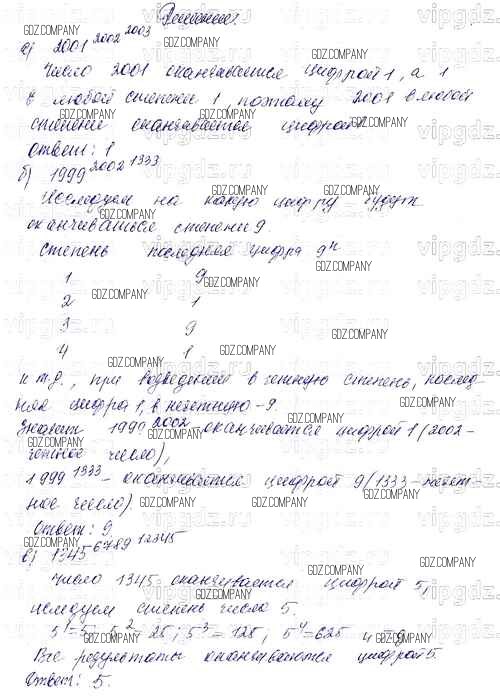 Решение
а) 2001^2002^2003
Число 2001 оканчивается цифрой 1, а 1
в любой степени 1, поэтому 2001 в любой
степени оканчивается цифрой 1.
Ответ: 1
б) 1999^2002^1333
Исследуем на какую цифру будет
оканчиваться степени 9.
Степень последняя цифра 9^n
1 9
2 1
3 9
4 1
и т.д., при возведении в четную степень, послед-
няя цифра 1, в нечетную - 9.
Значит 1999^2002 - оканчивается цифрой 1 (2002 -
четное число),
1999^1333 - оканчивается цифрой 9 (1333 - нечет-
ное число).
Ответ: 9.
в) 1345^6789^12345
Число 1345 оканчивается цифрой 5,
исследуем степень числа 5.
5^1=5; 5^2=25; 5^3=125; 5^4=625 и
Все результаты оканчиваются цифрой 5.
Ответ: 5.